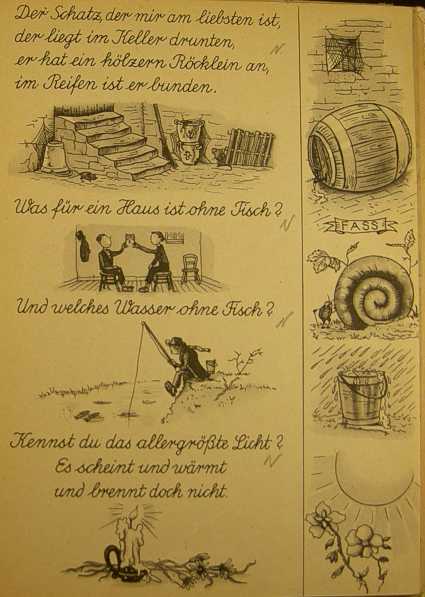 Der Schatz, der mir am liebsten ist,
der liegt im Keller drunten,
er hat ein hölzern Röcklein an,
im Reifen ist er bunden.
Was für ein Haus ist ohne Fisch?
Und welches Wasser ohne Fisch?
Kennst du das allergrößte Licht?
Es scheint und wärmt
und brennt doch nicht.
FASS